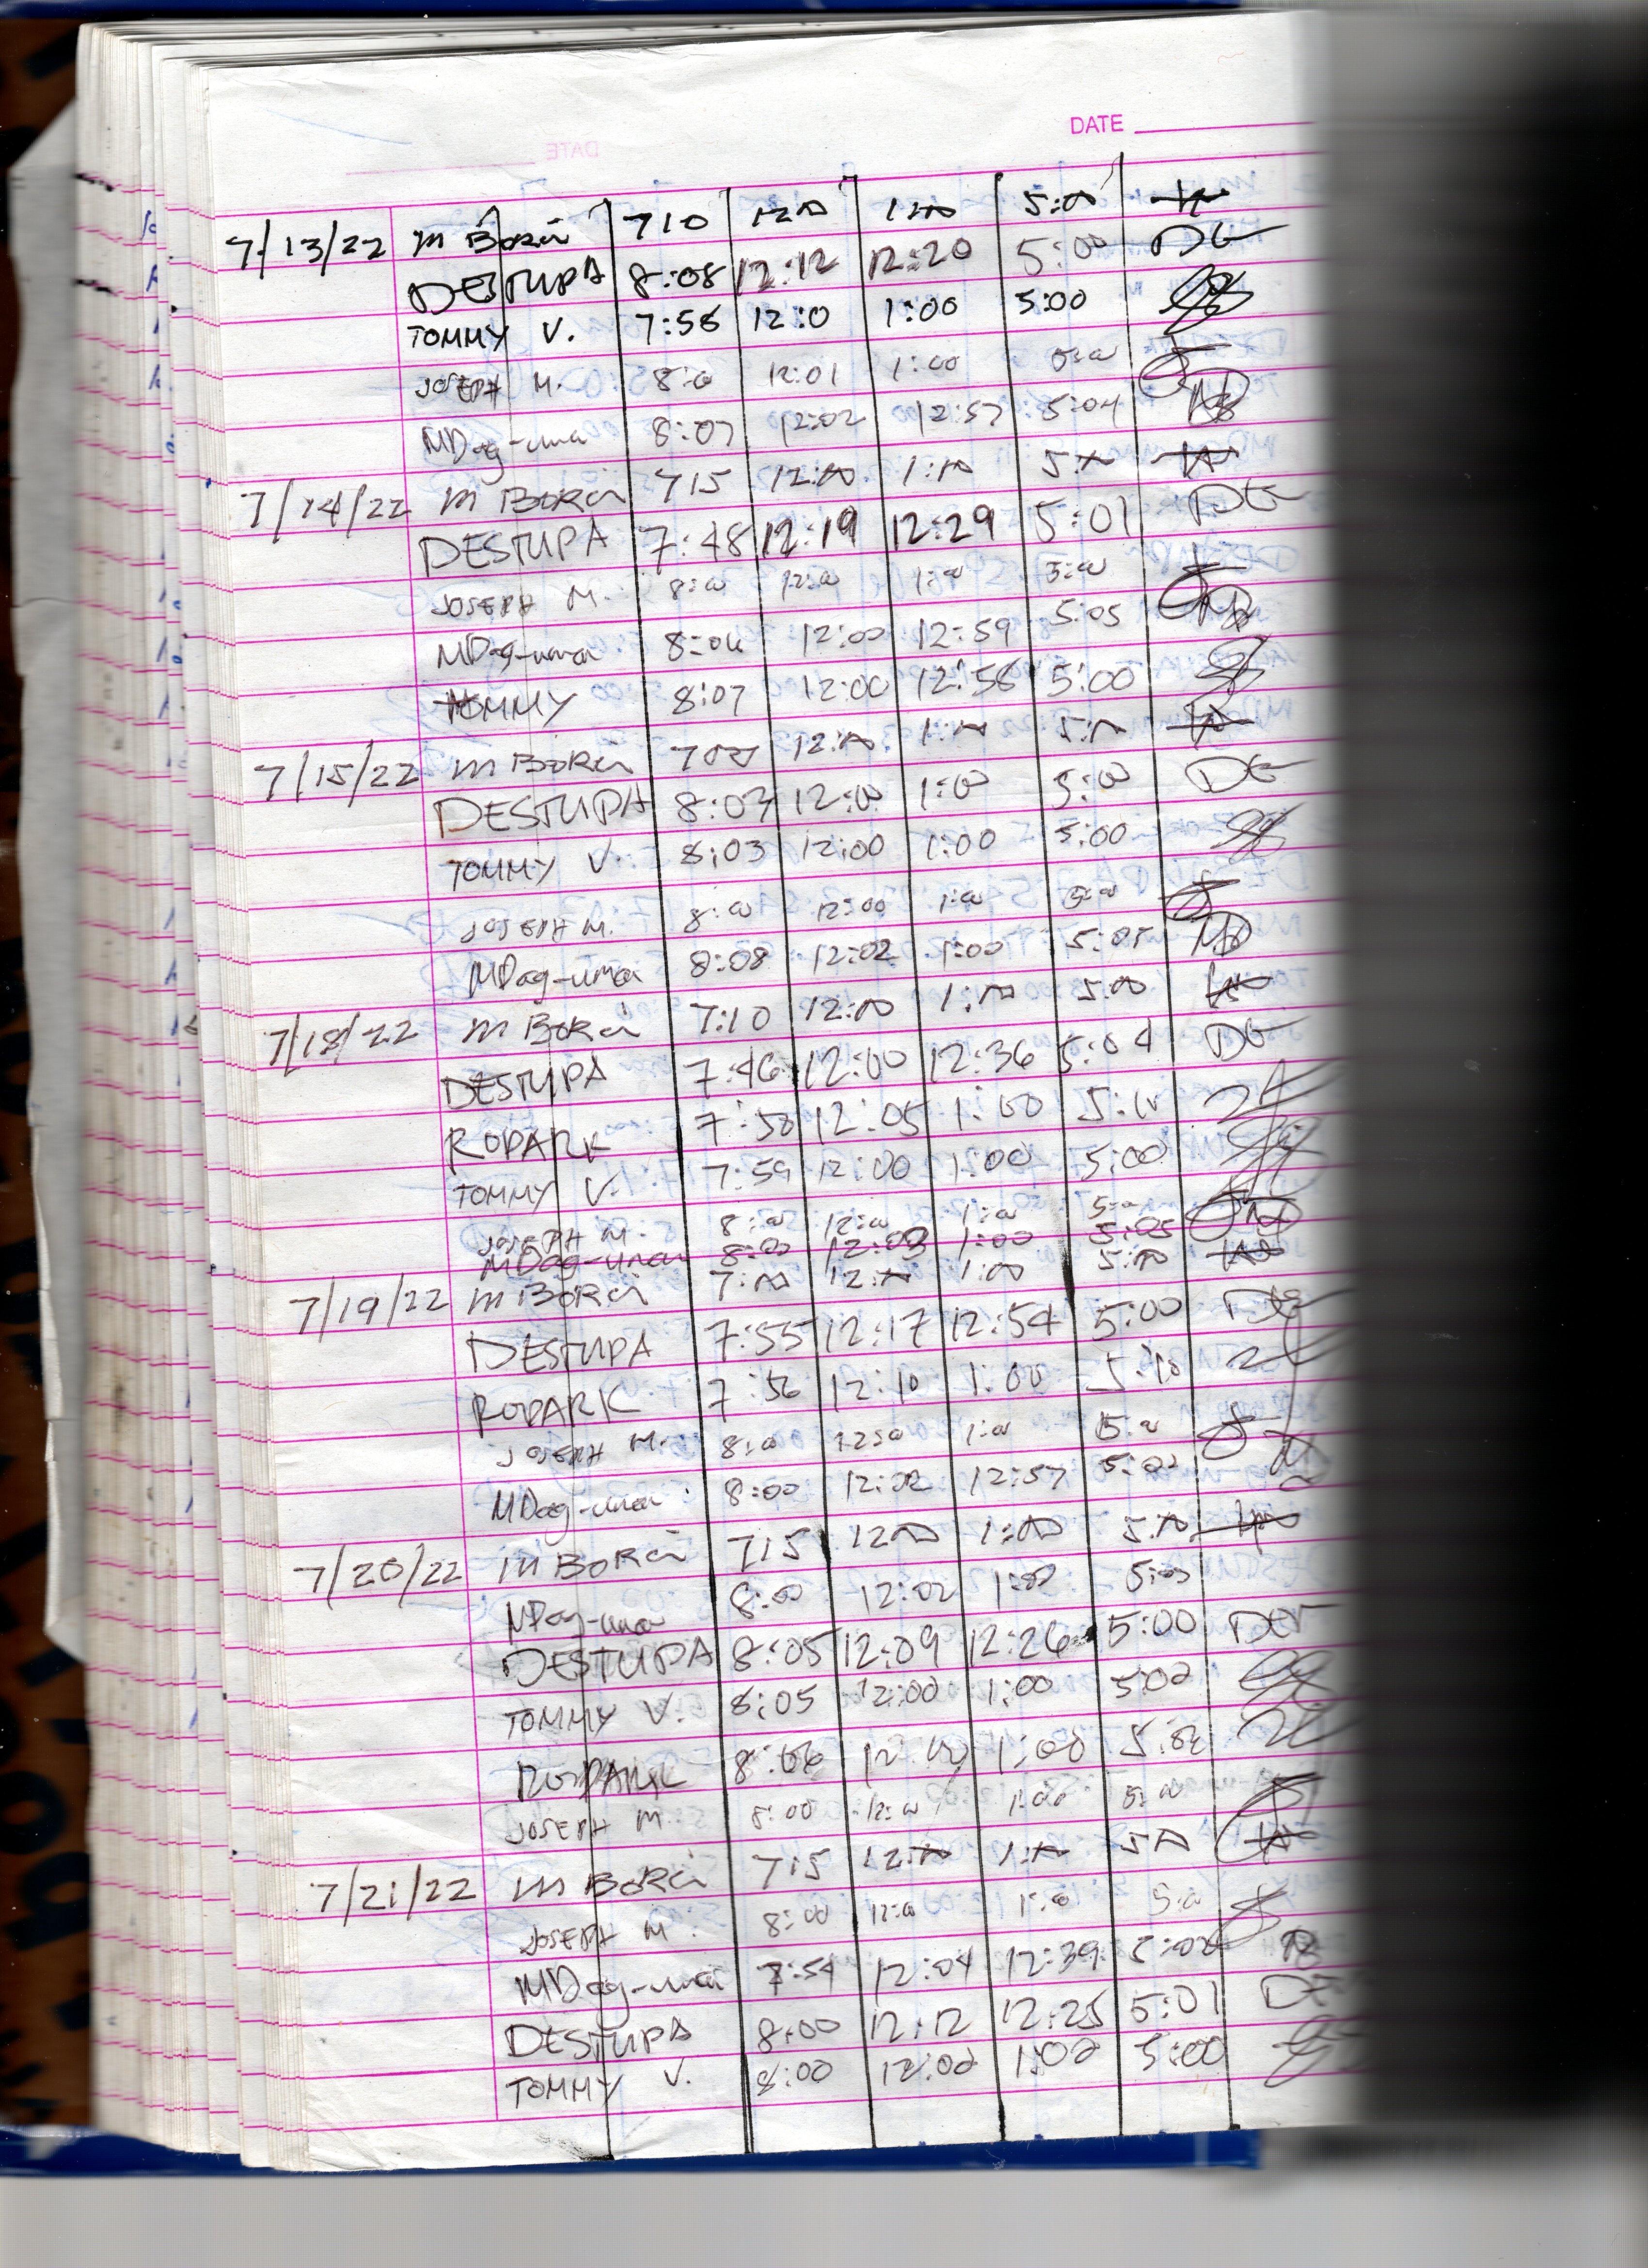 DATE
7/13/22 M Bora 710 12:00 1:00 5:00
DESTUPA 8:08 12:12 12:20 5:00 DE
TOMMY V. 7:56 12:0 1:00 5:00
JOSEPH M. 8:0 12:01 1:00 5:00
MDag-uman 8:07 12:02 12:57 5:04 MD
7/14/22 M Bora 715 12:00 1:00 5:00
DESTUPA 7:48 12:19 12:29 5:01 DE
JOSEPH M. 8:00 12:00 1:00 5:00
MDag-uman 8:04 12:00 12:59 5:05 MD
TOMMY 8:07 12:00 12:58 5:00
7/15/22 M Bora 700 12:00 1:00 5:00
DESTUPA 8:03 12:00 1:00 5:00 DE
TOMMY V. 8:03 12:00 1:00 5:00
JOSEPH M. 8:00 12:00 1:00 5:00
MDag-uman 8:08 12:02 1:00 5:05 MD
7/18/22 M Bora 7:10 12:00 1:00 5:00
DESTUPA 7:46 12:00 12:36 5:04 DE
RODARK 7:58 12:05 1:00
TOMMY V. 7:59 12:00 1:00 5:00
JOSEPH M. 8:00 12:00 1:00 5:00
MDag-uman 8:00 12:03 1:00 5:05
7/19/22 M Bora 7:00 12:00 1:00 5:00
DESTUPA 7:55 12:17 12:54 5:00 DE
RODARK 7:56 12:10 1:00 5:10
JOSEPH M. 8:00 12:00 1:00 5:00
MDag-uman 8:00 12:02 12:57 5:02
7/20/22 M Bora 715 1200 1:00 5:00
MDag-uman 8:00 12:02 1:00 5:03
DESTUPA 8:05 12:09 12:26 5:00 DE
TOMMY V. 8:05 12:00 1:00 5:02
RODARK 8:06 1:00
JOSEPH M. 8:00 12:00 1:00 5:00
7/21/22 M Bora 715 12:00 1:00 5:00
JOSEPH M. 8:00 12:00 1:00 5:00
MDag-uman 7:54 12:04 12:39 5:02
DESTUPA 8:00 12:12 12:25 5:01 DE
TOMMY V. 8:00 12:02 1:02 5:00